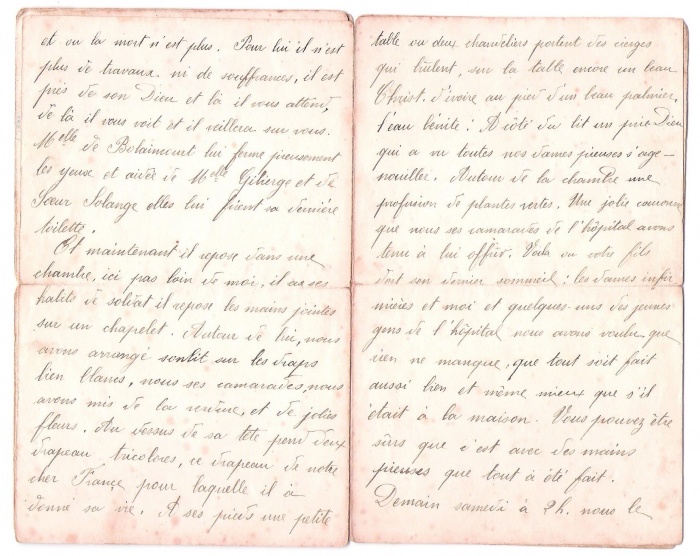 et ou la mort n'est plus. Pour lui il n'est
plus de travaux ni de souffrances, il est
près de son Dieu et là il vous attend,
de là il vous voit et il veillera sur vous.
Melle de Bolaincourt lui ferme pieusement
les yeux et aidée de Melle Gilierge et de
Sœur Solange elles lui firent sa dernière
toilette.
Et maintenant il repose dans une
chambre, ici pas loin de moi, il a ses
habits de soldat il repose les mains jointes
sur un chapelet. Autour de lui, nous
avons arrangé son lit sur les draps
bien blancs, nous ses camarades, nous
avons mis de la verdure, et de jolies
fleurs. Au dessus de sa tête pend deux
drapeau tricolores, ce drapeau de notre
cher France pour laquelle il à
donné sa vie. A ses pieds une petite
table ou deux chandeliers portent des cierges
qui brulent, sur la table encore un beau
Christ d'ivoire au pied d'un beau palmier,
l'eau bénite! A côté du lit un prie Dieu
qui a vu toutes nos dames pieuses s'age-
nouiller. Autour de la chambre une
profusion de plantes vertes. Une jolie couronne
que nous ses camarades de l'hôpital avons
tenu à lui offrir. Voila ou votre fils
dort son dernier sommeil: les dames infir
mières et moi et quelques-uns des jeunes
gens de l'hôpital nous avons voulu que
rien ne manque, que tout soit fait
aussi bien et même mieux que s'il
était à la maison. Vous pouvez être
sûrs que c'est avec des mains
pieuses que tout à été fait.
Demain samedi à 2h. nous le